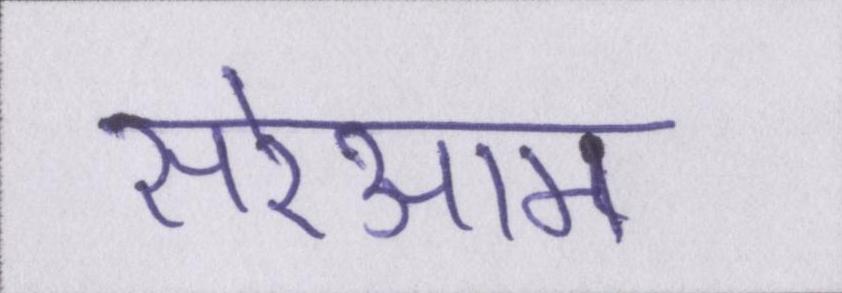 सरेआम